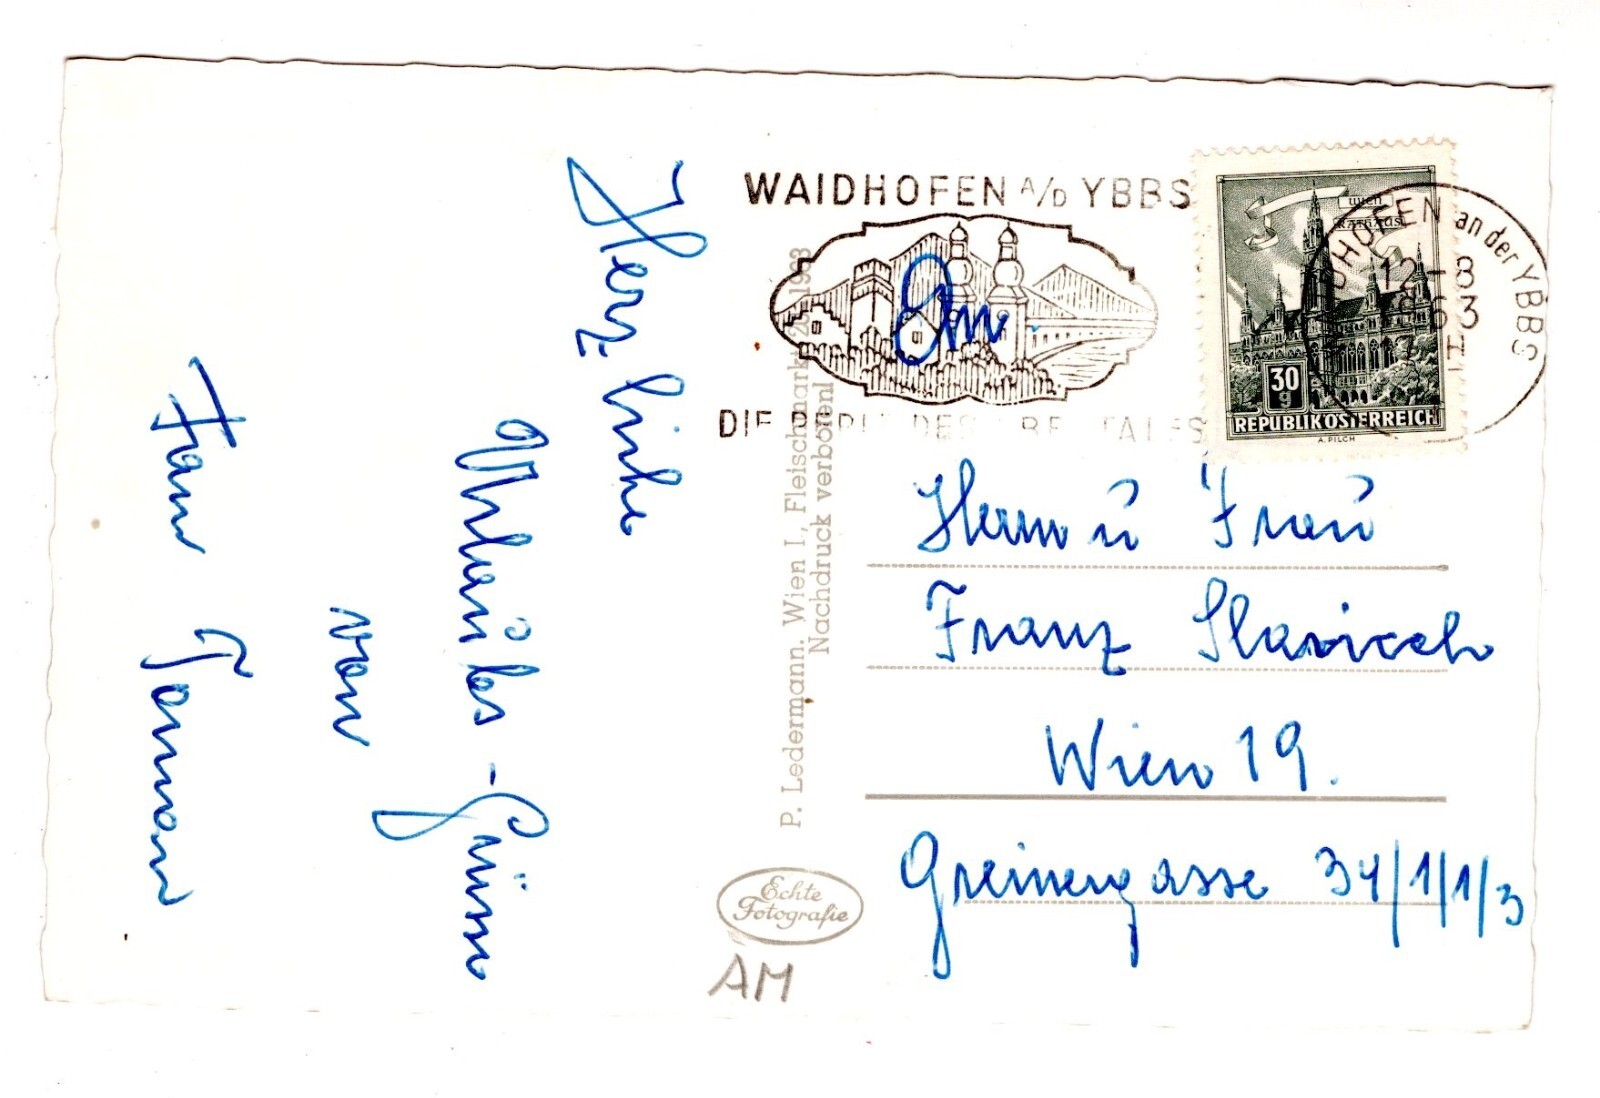 Herzliche
Urlaubs-Grüsse
von
Fam
WAIDHOFEN A/D YBBS
DIE PERLE DES YBBSTALES
WIEN
RATHAUS
30
g
REPUBLIK ÖSTERREICH
A. PILCH
WAIDHOFEN an der YBBS
12-8
1963
P. Ledermann, Wien I., Fleischmarkt 20, 1963
Nachdruck verboten!
Echte
Fotografie
AM
An
Herrn u Frau
Franz Slavicek
Wien 19.
Greinergasse 34/1/1/3